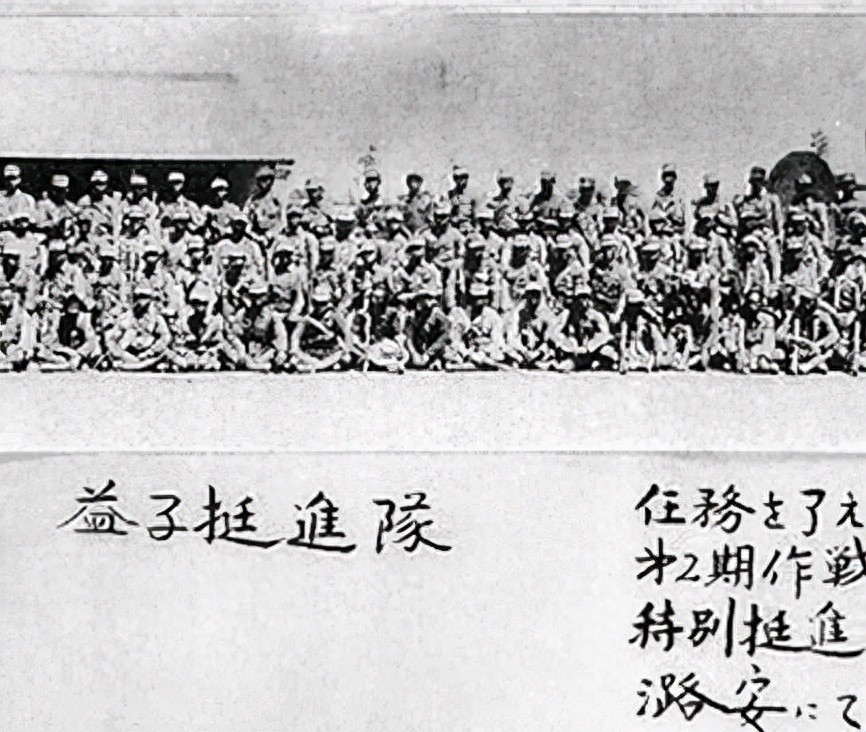 益子挺進隊
任務を了え
第2期作戦
特別挺進
潞安にて